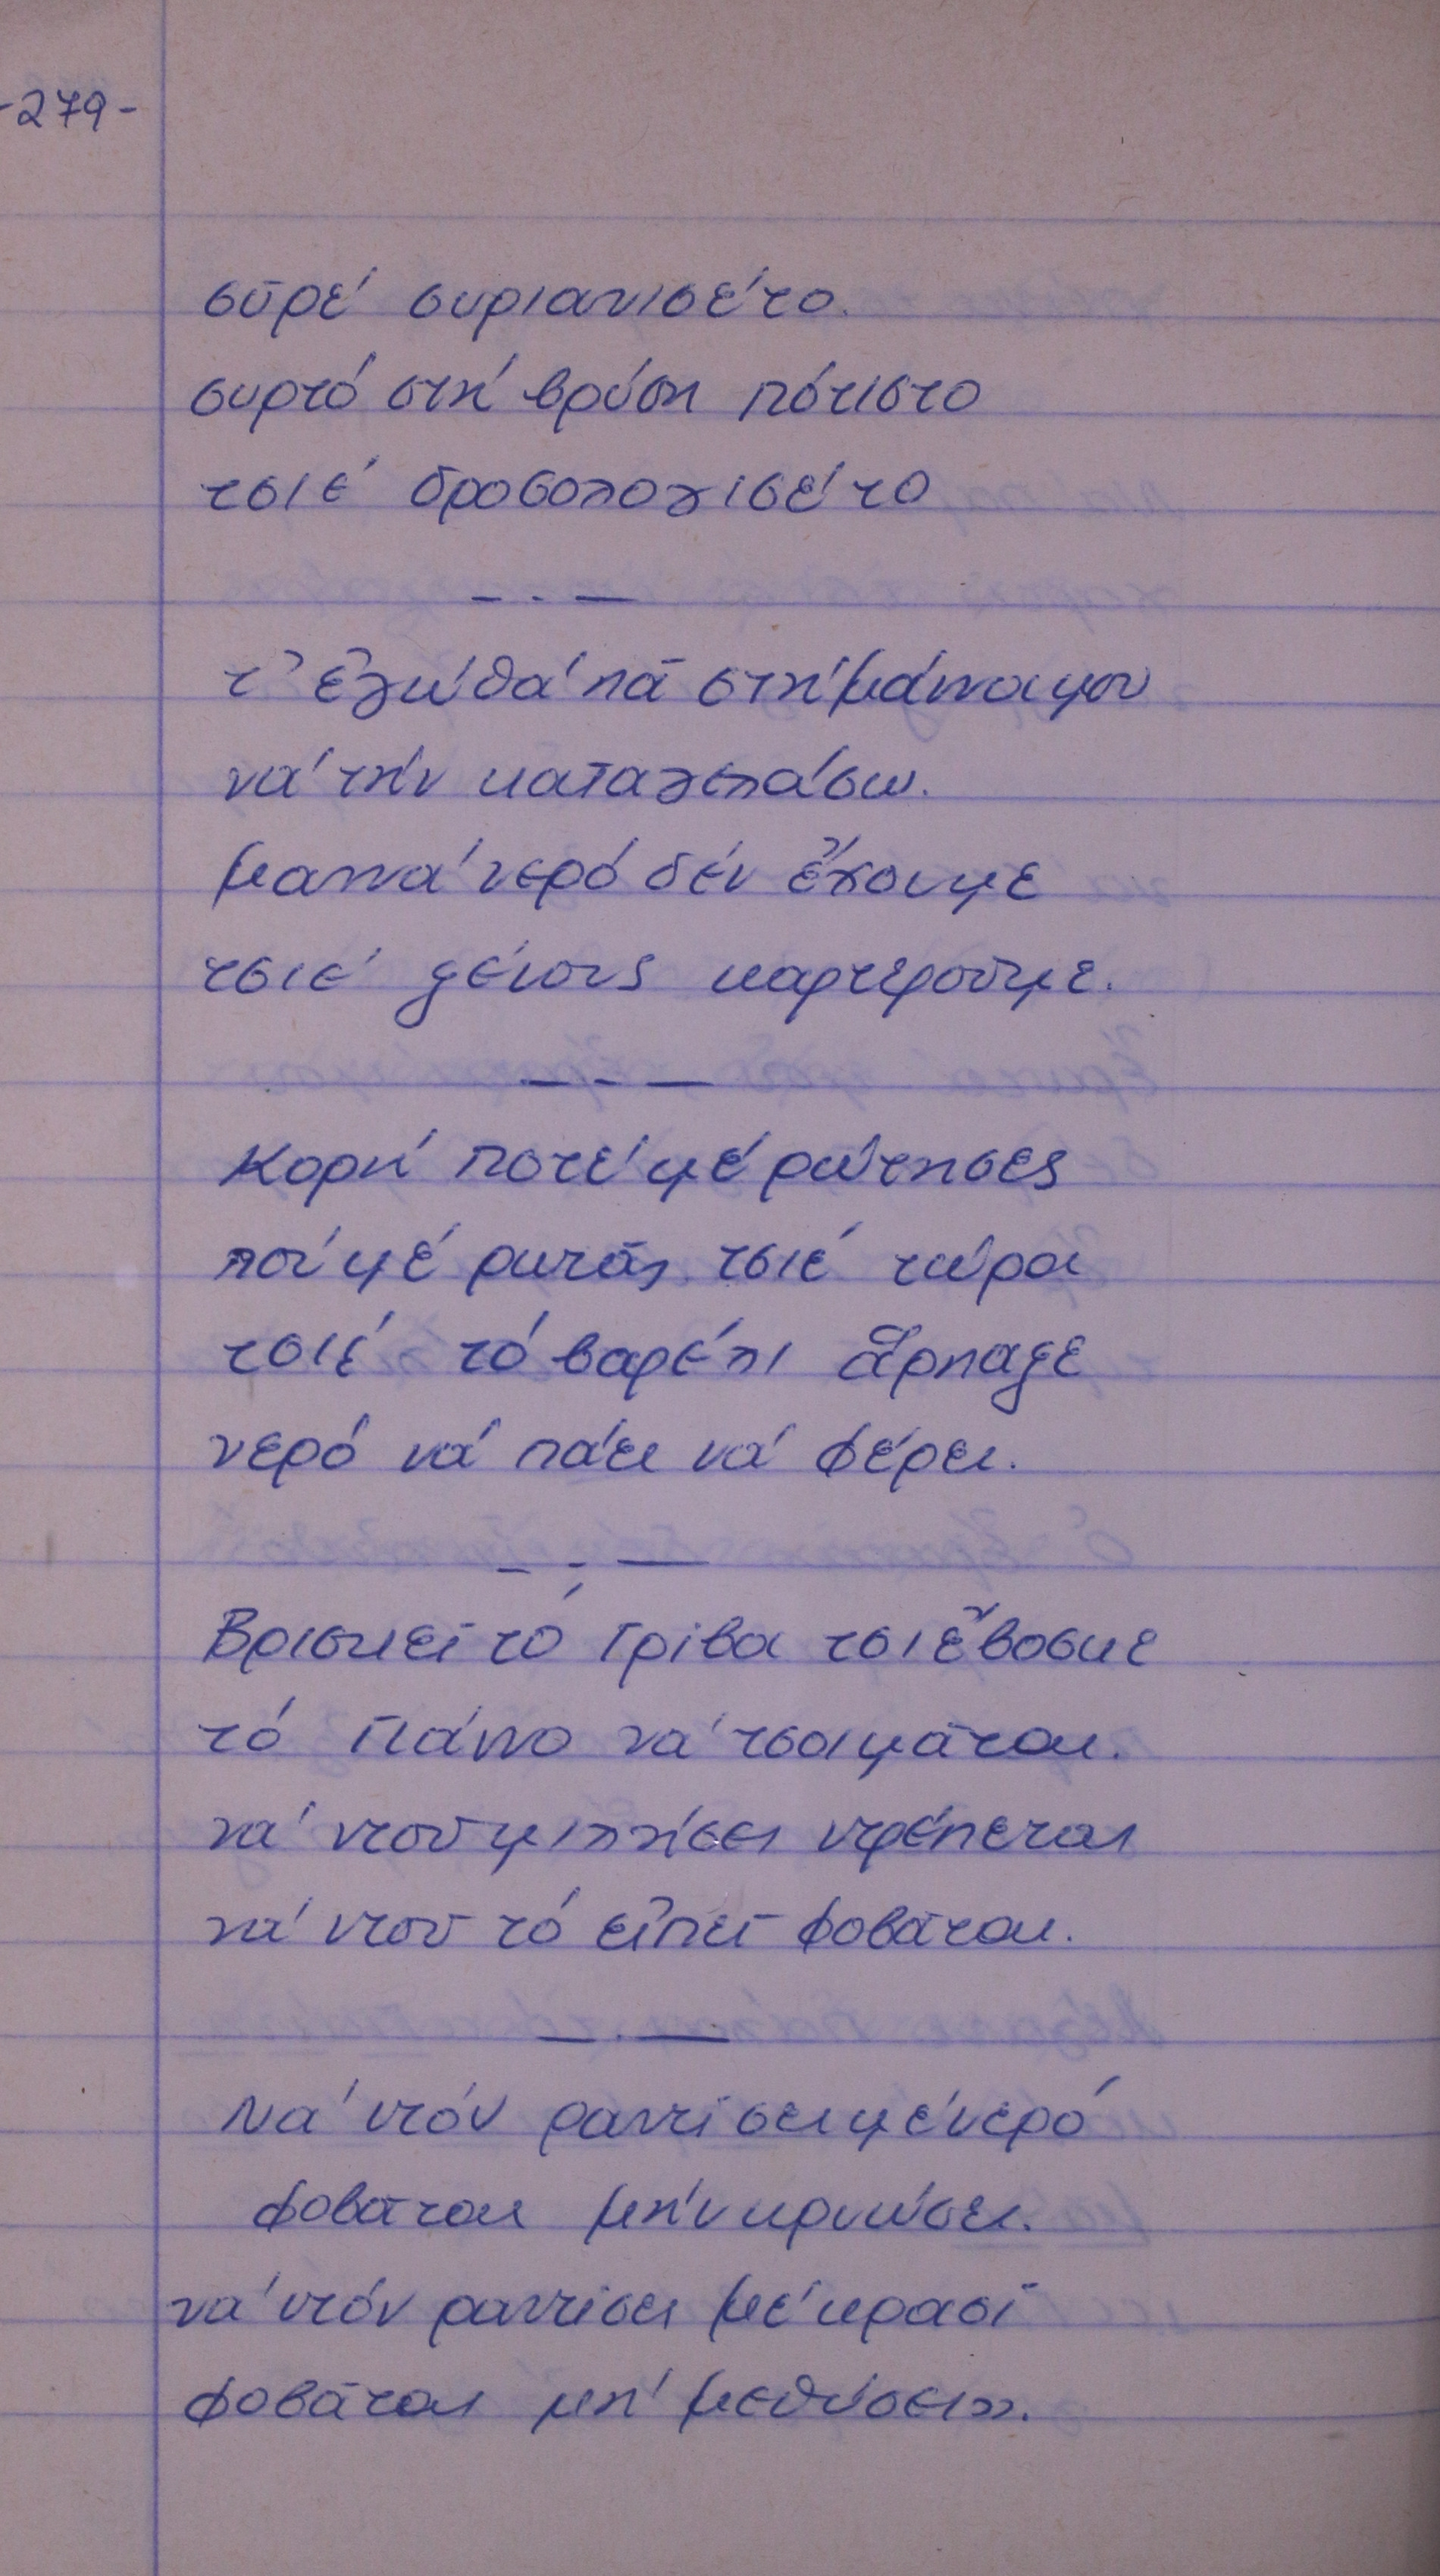 -279-
σῦρέ συριανισέ το.
συρτό στή βρύση πότιστο
τσιέ δροσολογισέ το
— . —
τ' ἐγώ θά πᾶ στή μάννα μου
νά τήν καταγελάσω.
μαννά νερό δέν ἔχουμε
τσιέ ξένους καρτεροῦμε.
— - —
Κορή ποτέ μέ ρώτησες
πού μέ ρωτᾶς τσιέ τώρα
τσιέ τό βαρέλι ἅρπαξε
νερό νά πάει νά φέρει.
— - —
Βρισκεῖ τό Γρίβα τσι ἔβοσκε
τό Πάννο νά τσοιμᾶται.
νά ντοῦ μιλήσει ντρέπεται
νά ντοῦ τό εἰπεῖ φοβᾶται.
— . —
Νά ντόν ραντίσει μέ νερό
φοβᾶται μήν κρυώσει.
νά ντόν ραντίσει μέ κρασί
φοβᾶται μή μεθύσει».